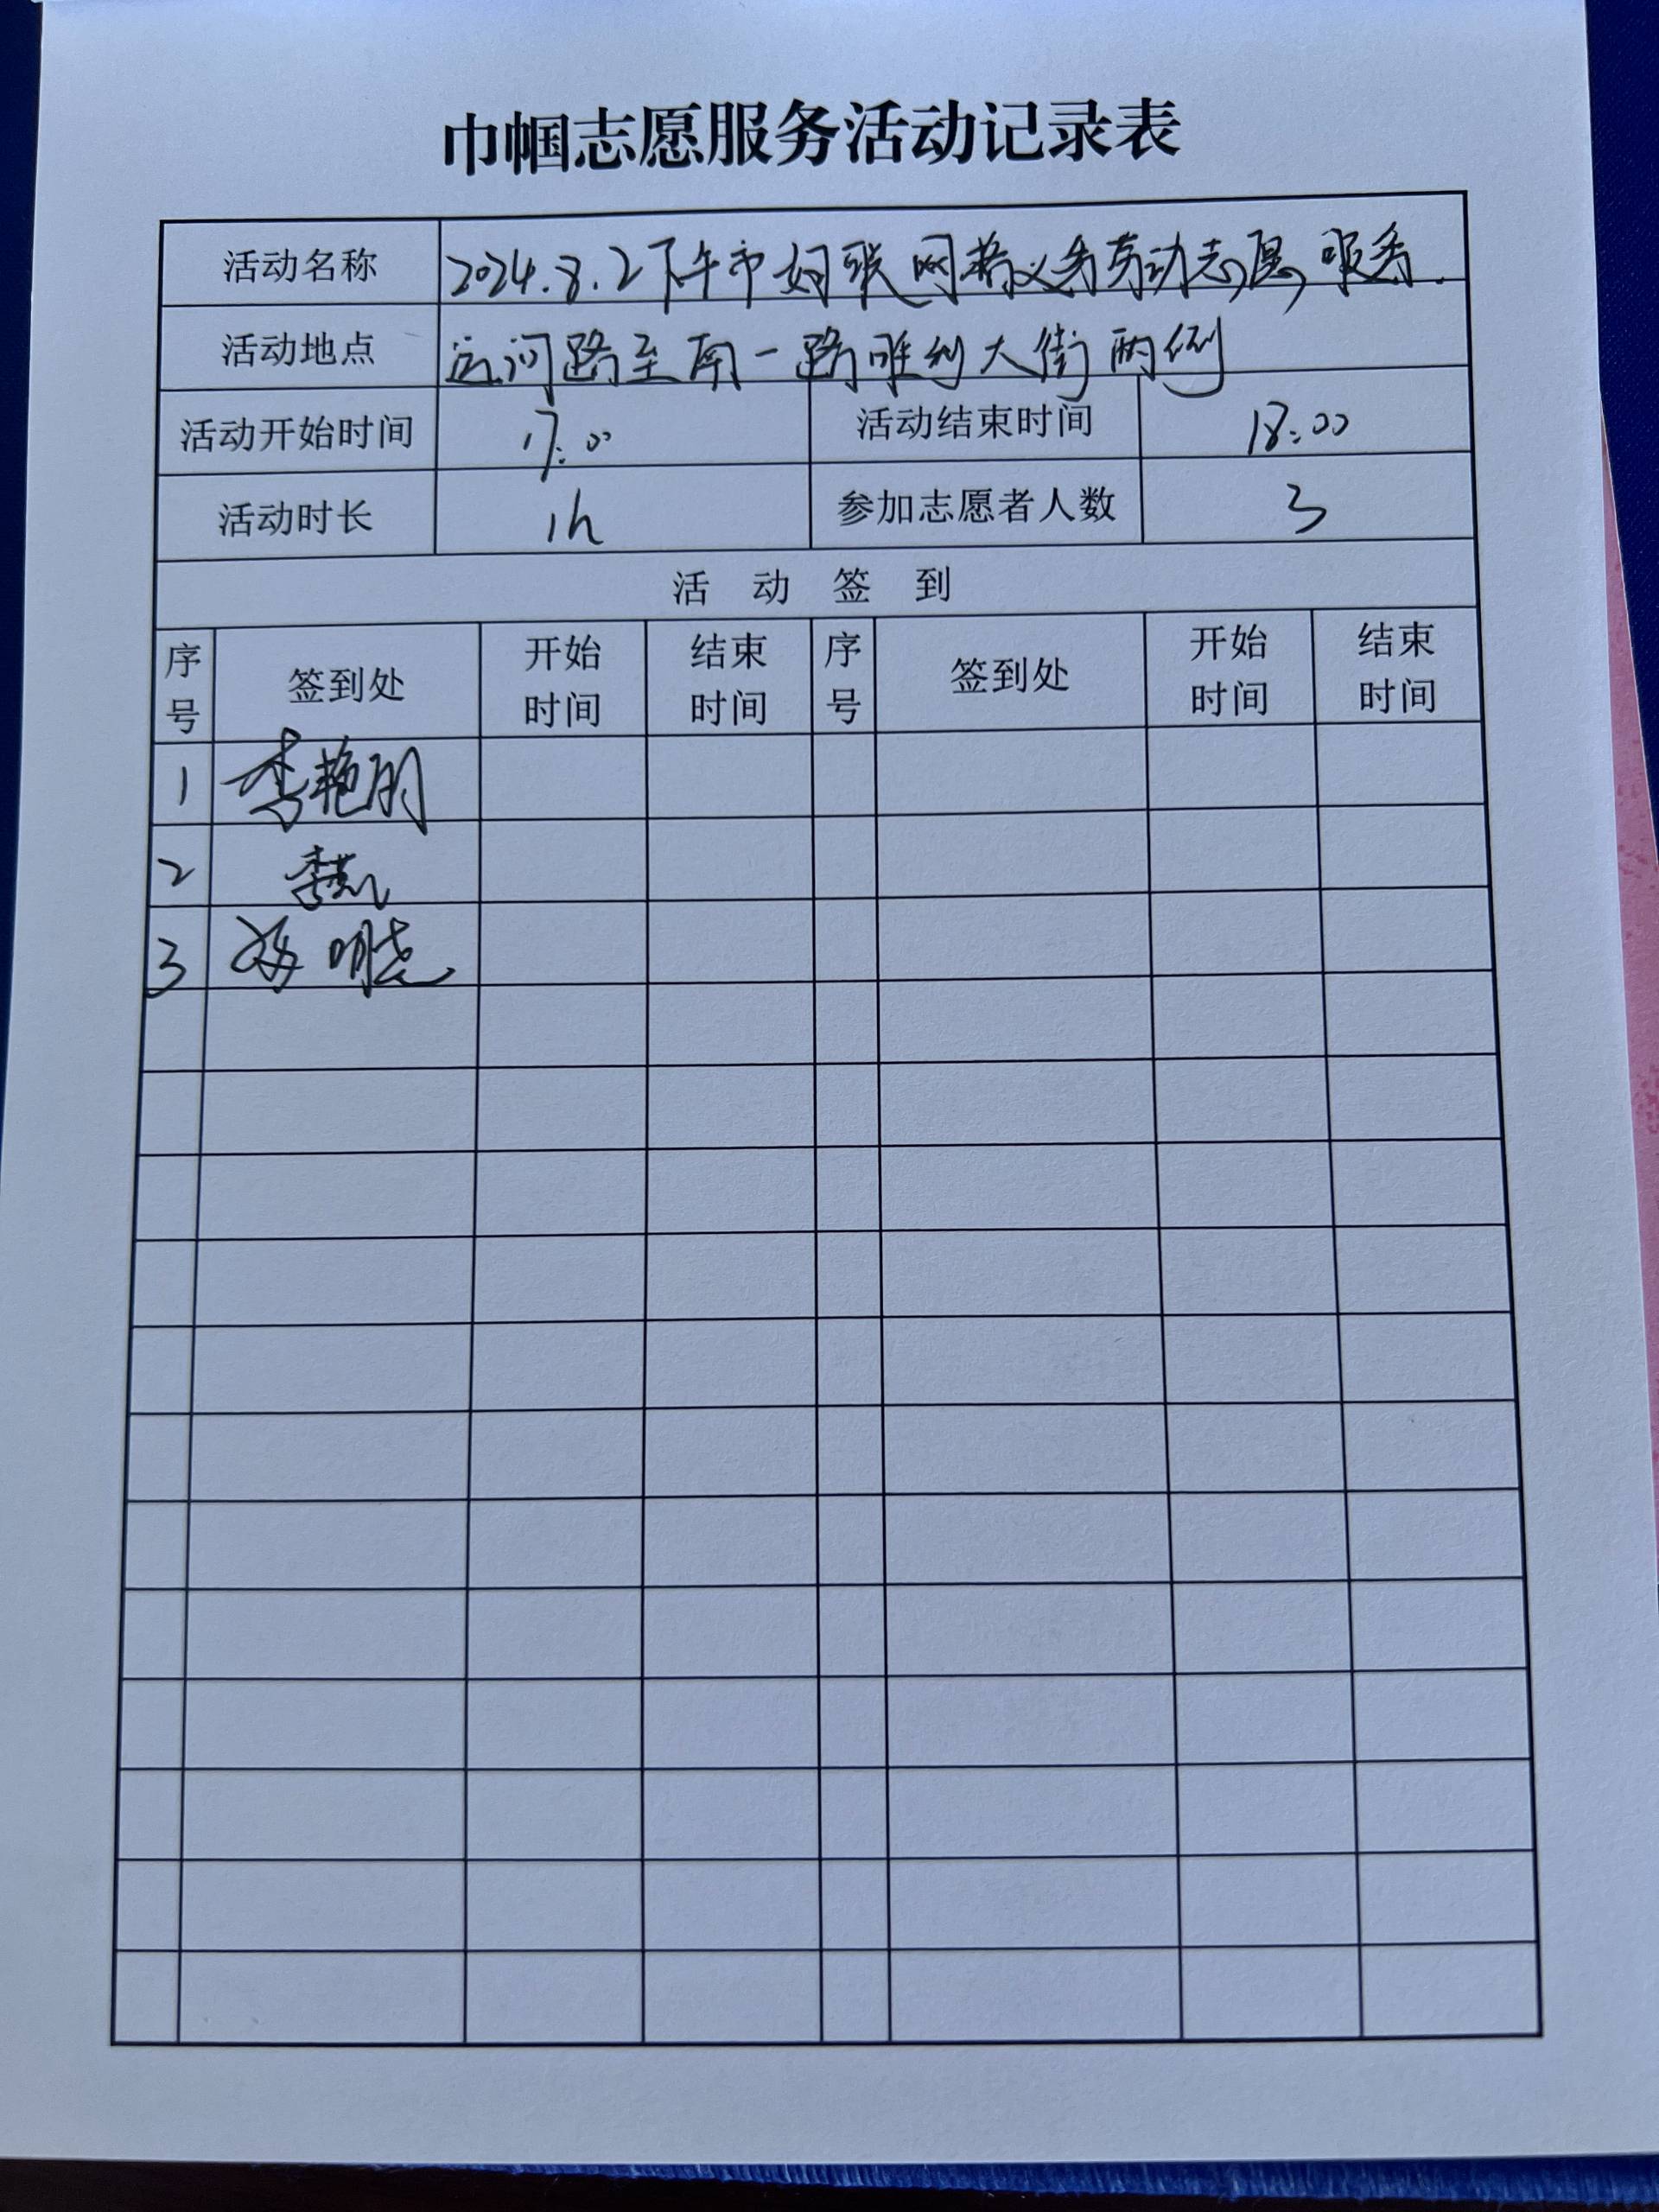 巾帼志愿服务活动记录表
活动名称 2024.8.2下午市妇联网格义务劳动志愿服务.
活动地点 运河路至南一路胜利大街两侧
活动开始时间 17:00 活动结束时间 18:00
活动时长 1h 参加志愿者人数 3
活 动 签 到
序号 签到处 开始时间 结束时间 序号 签到处 开始时间 结束时间
1 李艳明
2 李
3 明亮